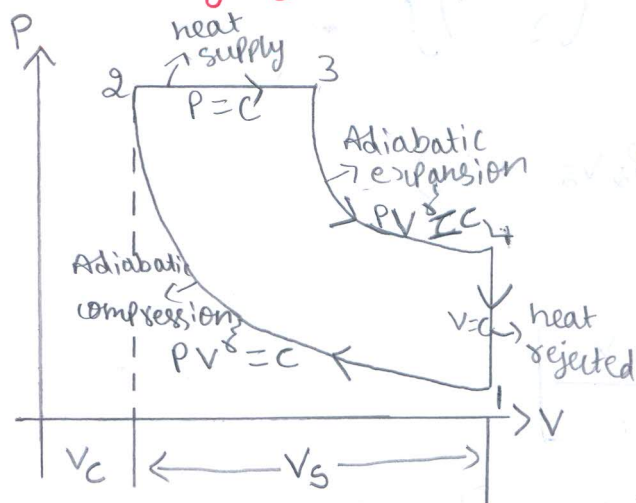 P
heat
supply
2
3
P = C
Adiabatic
expansion
PV^γ = C
4
Adiabatic
compression
PV^γ = C
V=C
heat
rejected
1
V
Vc
Vs